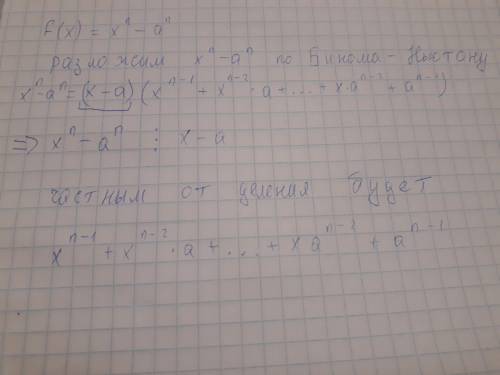 f(x) = xⁿ - aⁿ
разложим xⁿ - aⁿ по Бинома - Ньютону
xⁿ-aⁿ = (x-a) (xⁿ⁻¹ + xⁿ⁻²·a + ... + x·aⁿ⁻² + aⁿ⁻¹)
=> xⁿ - aⁿ ⋮ x - a
частным от деления будет
xⁿ⁻¹ + xⁿ⁻²·a + ... + xaⁿ⁻² + aⁿ⁻¹